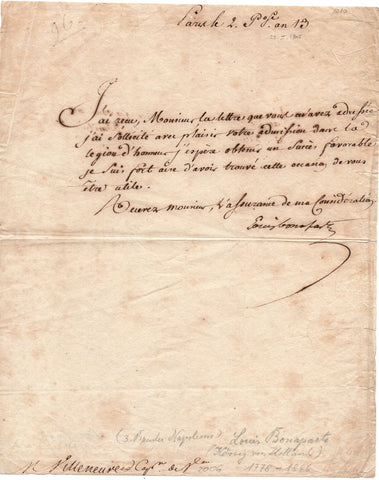 Paris le 2. P.al an 13
J'ai recu, Monsieur la lettre que vous m'avez adressée
j'ai sollicité avec plaisir votre admission dans la
legion d'honneur j'espère obtenir un succès favorable
je suis fort aise d'avoir trouvé cette occasion de vous
être utile.
Recevez monsieur, l'assurance de ma Considération
Louis bonaparte
(3. Bruder Napoleons) Louis Bonaparte
(König von Holland)
1778-1846
Villeneuve